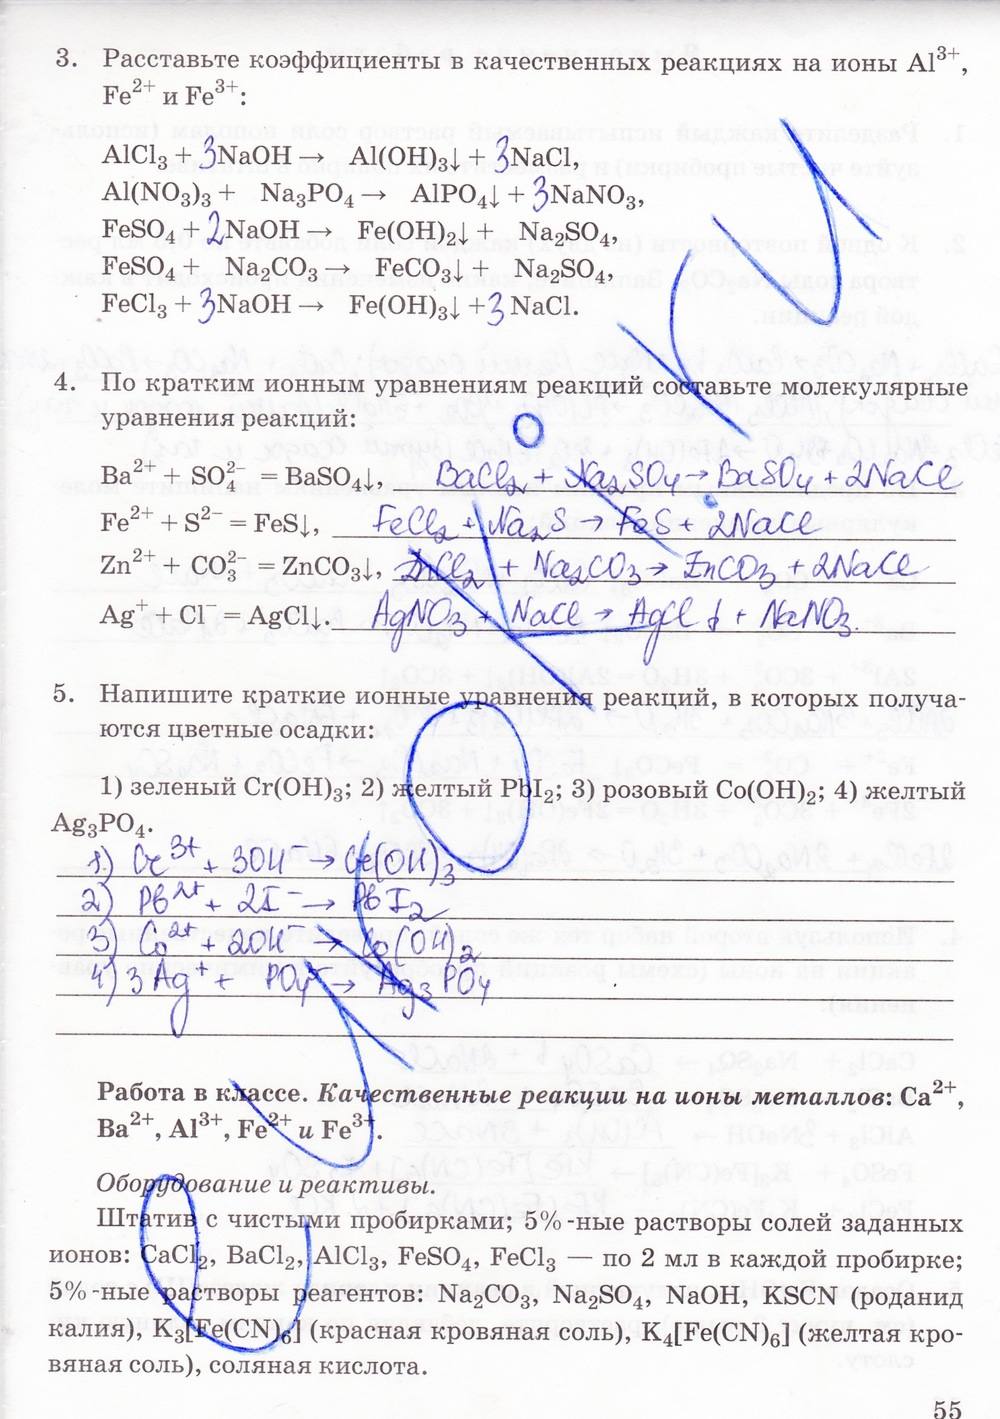 3. Расставьте коэффициенты в качественных реакциях на ионы Al³⁺,
Fe²⁺ и Fe³⁺:
AlCl₃ + 3NaOH → Al(OH)₃↓ + 3NaCl,
Al(NO₃)₃ + Na₃PO₄ → AlPO₄↓ + 3NaNO₃,
FeSO₄ + 2NaOH → Fe(OH)₂↓ + Na₂SO₄,
FeSO₄ + Na₂CO₃ → FeCO₃↓ + Na₂SO₄,
FeCl₃ + 3NaOH → Fe(OH)₃↓ + 3 NaCl.
4. По кратким ионным уравнениям реакций составьте молекулярные
уравнения реакций:
Ba²⁺ + SO₄²⁻ = BaSO₄↓, BaCl₂ + Na₂SO₄ → BaSO₄ + 2NaCl
Fe²⁺ + S²⁻ = FeS↓, FeCl₂ + Na₂S → FeS + 2NaCl
Zn²⁺ + CO₃²⁻ = ZnCO₃↓, ZnCl₂ + Na₂CO₃ → ZnCO₃ + 2NaCl
Ag⁺ + Cl⁻ = AgCl↓. AgNO₃ + NaCl → AgCl↓ + NaNO₃.
5. Напишите краткие ионные уравнения реакций, в которых получа-
ются цветные осадки:
1) зеленый Cr(OH)₃; 2) желтый PbI₂; 3) розовый Co(OH)₂; 4) желтый
Ag₃PO₄.
1) Cr³⁺ + 3OH⁻ → Cr(OH)₃
2) Pb²⁺ + 2I⁻ → PbI₂
3) Co²⁺ + 2OH⁻ → Co(OH)₂
4) 3Ag⁺ + PO₄ → Ag₃PO₄
Работа в классе. Качественные реакции на ионы металлов: Ca²⁺,
Ba²⁺, Al³⁺, Fe²⁺ и Fe³⁺.
Оборудование и реактивы.
Штатив с чистыми пробирками; 5%-ные растворы солей заданных
ионов: CaCl₂, BaCl₂, AlCl₃, FeSO₄, FeCl₃ — по 2 мл в каждой пробирке;
5%-ные растворы реагентов: Na₂CO₃, Na₂SO₄, NaOH, KSCN (роданид
калия), K₃[Fe(CN)₆] (красная кровяная соль), K₄[Fe(CN)₆] (желтая кро-
вяная соль), соляная кислота.
55